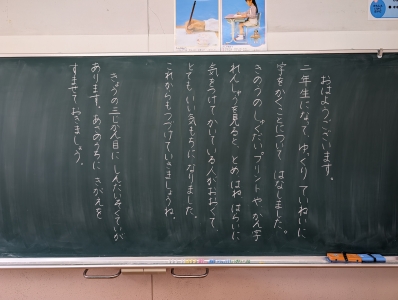 おはようございます。
二年生になって、ゆっくり ていねいに
字をかくことについて はなしました。
きのうの しゅくだいプリントや かん字
れんしゅうを見ると、とめ はね はらいに
気をつけてかいている人がおおくて、
とてもいい気もちになりました。
これからもつづけていきましょうね。
きょうの三じかん目に しんたいそくていが
あります。あさのうちに きがえを
すませておきましょう。